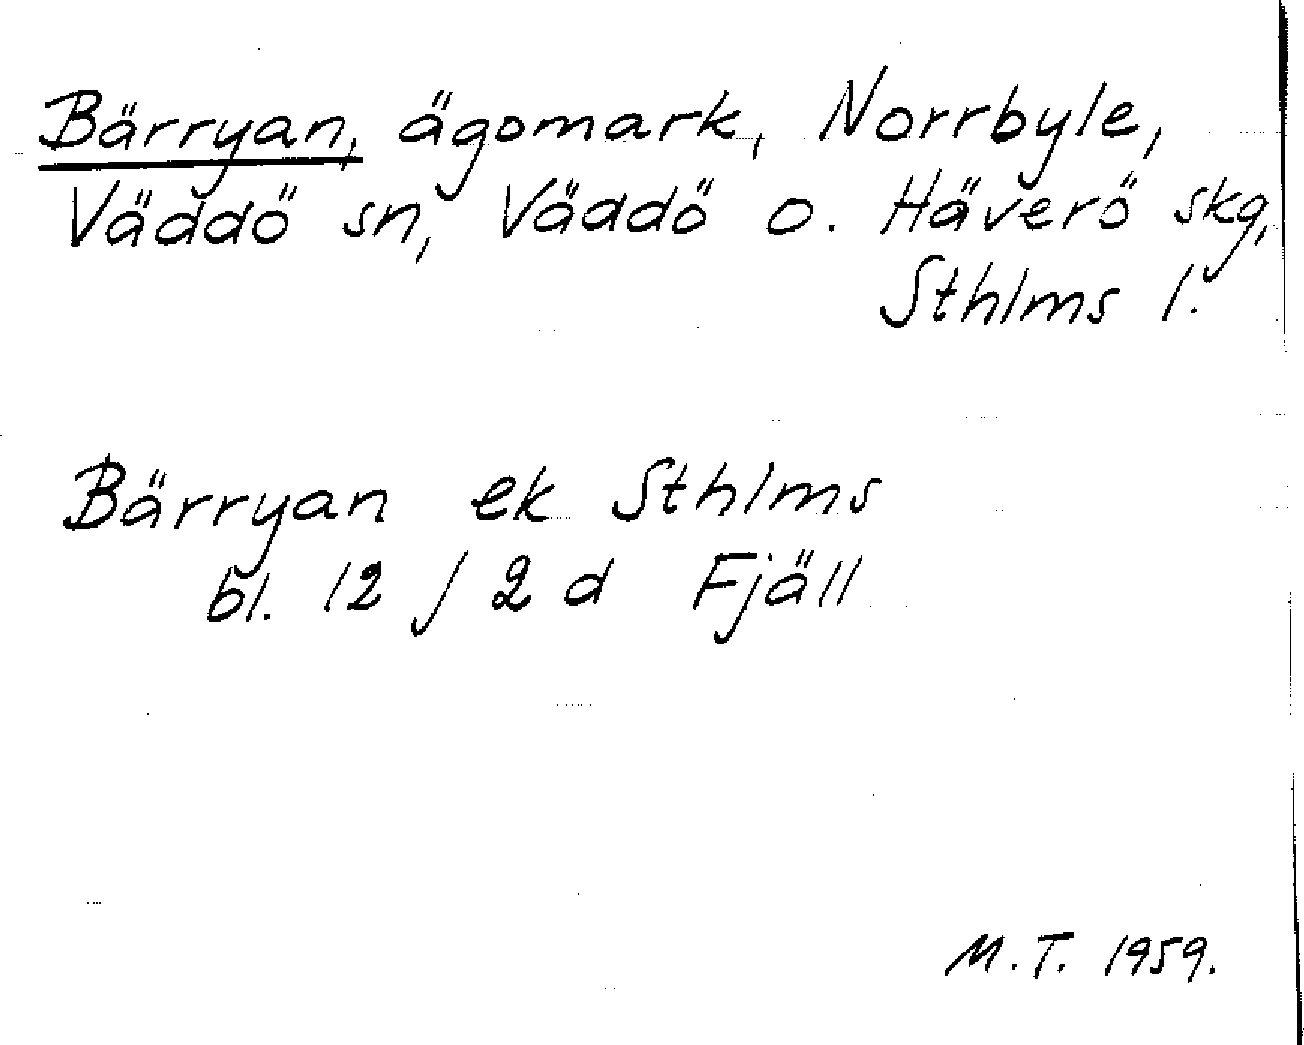 Bärryan, ägomark, Norrbyle,
Väddö sn, Väddö o. Häverö skg,
Sthlms l.
Bärryan ek Sthlms
bl. 12 J 2 d Fjäll
M.T. 1959.